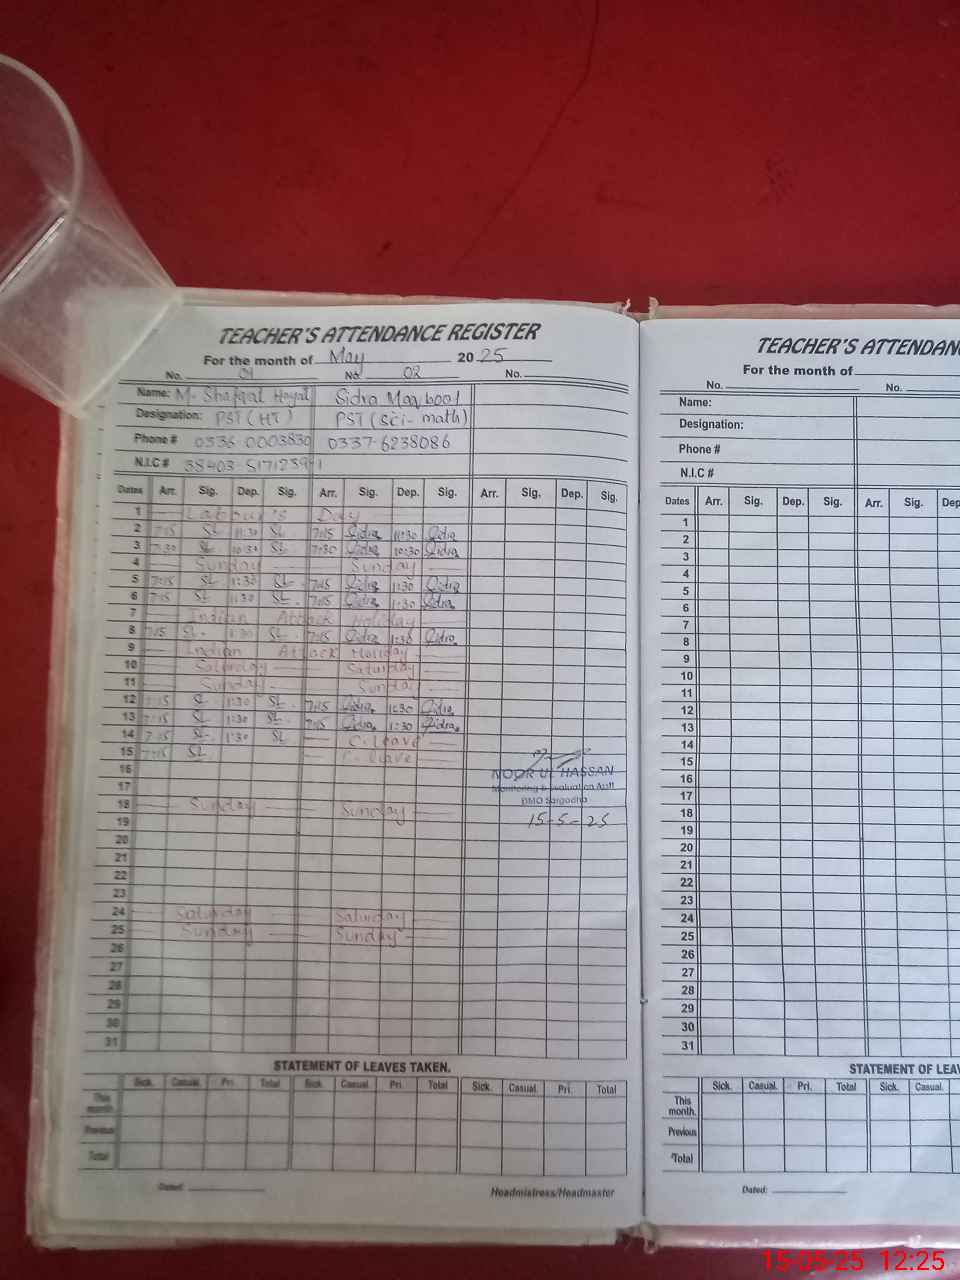 TEACHER'S ATTENDANCE REGISTER
For the month of May 2025
No. 01 No. 02 No.
Name: M. Shafqat Hayat Sidra Maqbool
Designation: PST (HT) PST (Sci-math)
Phone # 0336-0003830 0337-6238086
N.I.C # 38403-5171259-1
Dates Arr. Sig. Dep. Sig. Arr. Sig. Dep. Sig. Arr. Sig. Dep. Sig.
1 Labour's Day
2 7:15 SL 11:30 SL 7:15 Sidra 11:30 Sidra
3 7:30 SL 10:30 SL 7:30 Sidra 10:30 Sidra
4 Sunday Sunday
5 7:15 SL 1:30 SL 7:15 Sidra 1:30 Sidra
6 7:15 SL 1:30 SL 7:15 Sidra 1:30 Sidra
7 Indian Attack Holiday
8 7:15 SL 1:30 SL 7:15 Sidra 1:30 Sidra
9 Indian Attack Holiday
10 Saturday Saturday
11 Sunday Sunday
12 7:15 SL 1:30 SL 7:15 Sidra 1:30 Sidra
13 7:15 SL 1:30 SL 7:15 Sidra 1:30 Sidra
14 7:15 SL 1:30 SL C. Leave
15 7:15 SL C. Leave
16
NOOR UL HASSAN
17
Monitoring & Evaluation Astt
DMO Sargodha
18 Sunday Sunday
19
15-5-25
20
21
22
23
24 Saturday Saturday
25 Sunday Sunday
26
27
28
29
30
31
STATEMENT OF LEAVES TAKEN.
Sick. Casual. Pri. Total Sick. Casual. Pri. Total Sick. Casual. Pri. Total
This month.
Previous
Total
Dated:
Headmistress/Headmaster
TEACHER'S ATTENDAN
For the month of
No. No.
Name:
Designation:
Phone #
N.I.C #
Dates Arr. Sig. Dep. Sig. Arr. Sig. Dep
1
2
3
4
5
6
7
8
9
10
11
12
13
14
15
16
17
18
19
20
21
22
23
24
25
26
27
28
29
30
31
STATEMENT OF LEAV
Sick. Casual. Pri. Total Sick. Casual.
This month.
Previous
Total
Dated:
15-05-25 12:25